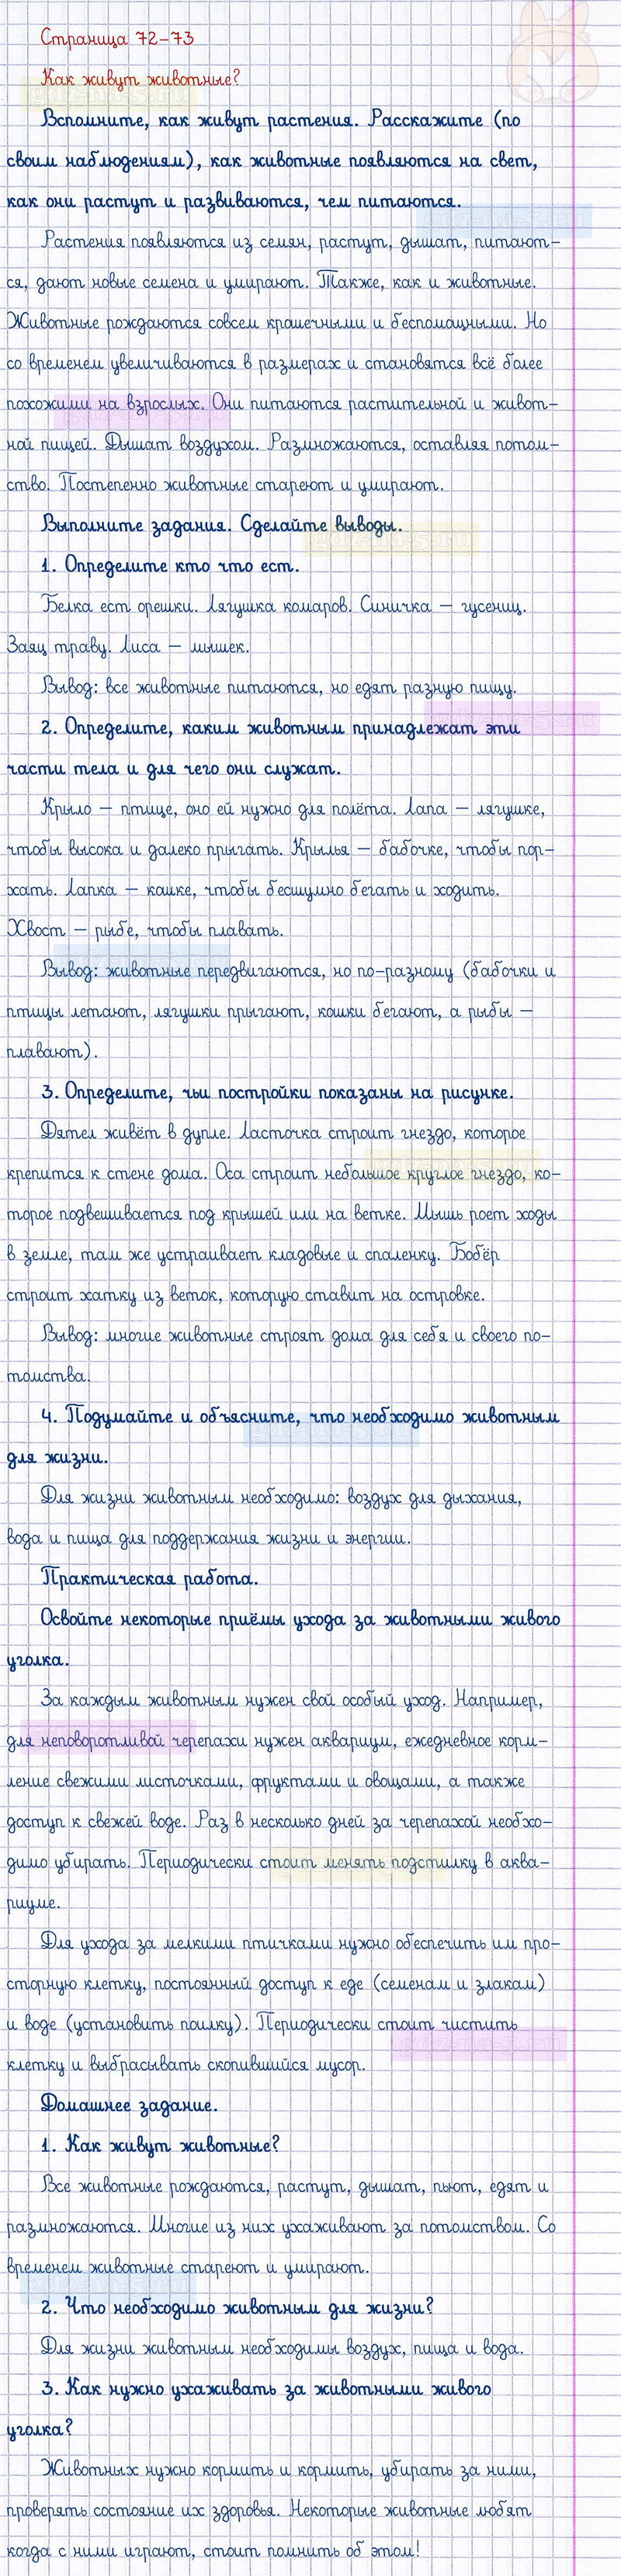 Страница 72-73
Как живут животные?
Вспомните, как живут растения. Расскажите (по
своим наблюдениям), как животные появляются на свет,
как они растут и развиваются, чем питаются.
Растения появляются из семян, растут, дышат, питают-
ся, дают новые семена и умирают. Также, как и животные.
Животные рождаются совсем крошечными и беспомощными. Но
со временем увеличиваются в размерах и становятся всё более
похожими на взрослых. Они питаются растительной и живот-
ной пищей. Дышат воздухом. Размножаются, оставляя потом-
ство. Постепенно животные стареют и умирают.
Выполните задания. Сделайте выводы.
1. Определите кто что ест.
Белка ест орешки. Лягушка комаров. Синичка – гусениц.
Заяц траву. Лиса – мышек.
Вывод: все животные питаются, но едят разную пищу.
2. Определите, каким животным принадлежат эти
части тела и для чего они служат.
Крыло – птице, оно ей нужно для полёта. Лапа – лягушке,
чтобы высока и далеко прыгать. Крылья – бабочке, чтобы пор-
хать. Лапка – кошке, чтобы бесшумно бегать и ходить.
Хвост – рыбе, чтобы плавать.
Вывод: животные передвигаются, но по-разному (бабочки и
птицы летают, лягушки прыгают, кошки бегают, а рыбы –
плавают).
3. Определите, чьи постройки показаны на рисунке.
Дятел живёт в дупле. Ласточка строит гнездо, которое
крепится к стене дома. Оса строит небольшое круглое гнездо, ко-
торое подвешивается под крышей или на ветке. Мышь роет ходы
в земле, там же устраивает кладовые и спаленку. Бобёр
строит хатку из веток, которую ставит на островке.
Вывод: многие животные строят дома для себя и своего по-
томства.
4. Подумайте и объясните, что необходимо животным
для жизни.
Для жизни животным необходимо: воздух для дыхания,
вода и пища для поддержания жизни и энергии.
Практическая работа.
Освойте некоторые приёмы ухода за животными живого
уголка.
За каждым животным нужен свой особый уход. Например,
для неповоротливой черепахи нужен аквариум, ежедневное корм-
ление свежими листочками, фруктами и овощами, а также
доступ к свежей воде. Раз в несколько дней за черепахой необхо-
димо убирать. Периодически стоит менять подстилку в аква-
риуме.
Для ухода за мелкими птичками нужно обеспечить им про-
сторную клетку, постоянный доступ к еде (семенам и злакам)
и воде (установить поилку). Периодически стоит чистить
клетку и выбрасывать скопившийся мусор.
Домашнее задание.
1. Как живут животные?
Все животные рождаются, растут, дышат, пьют, едят и
размножаются. Многие из них ухаживают за потомством. Со
временем животные стареют и умирают.
2. Что необходимо животным для жизни?
Для жизни животным необходимы воздух, пища и вода.
3. Как нужно ухаживать за животными живого
уголка?
Животных нужно кормить и кормить, убирать за ними,
проверять состояние их здоровья. Некоторые животные любят
когда с ними играют, стоит помнить об этом!